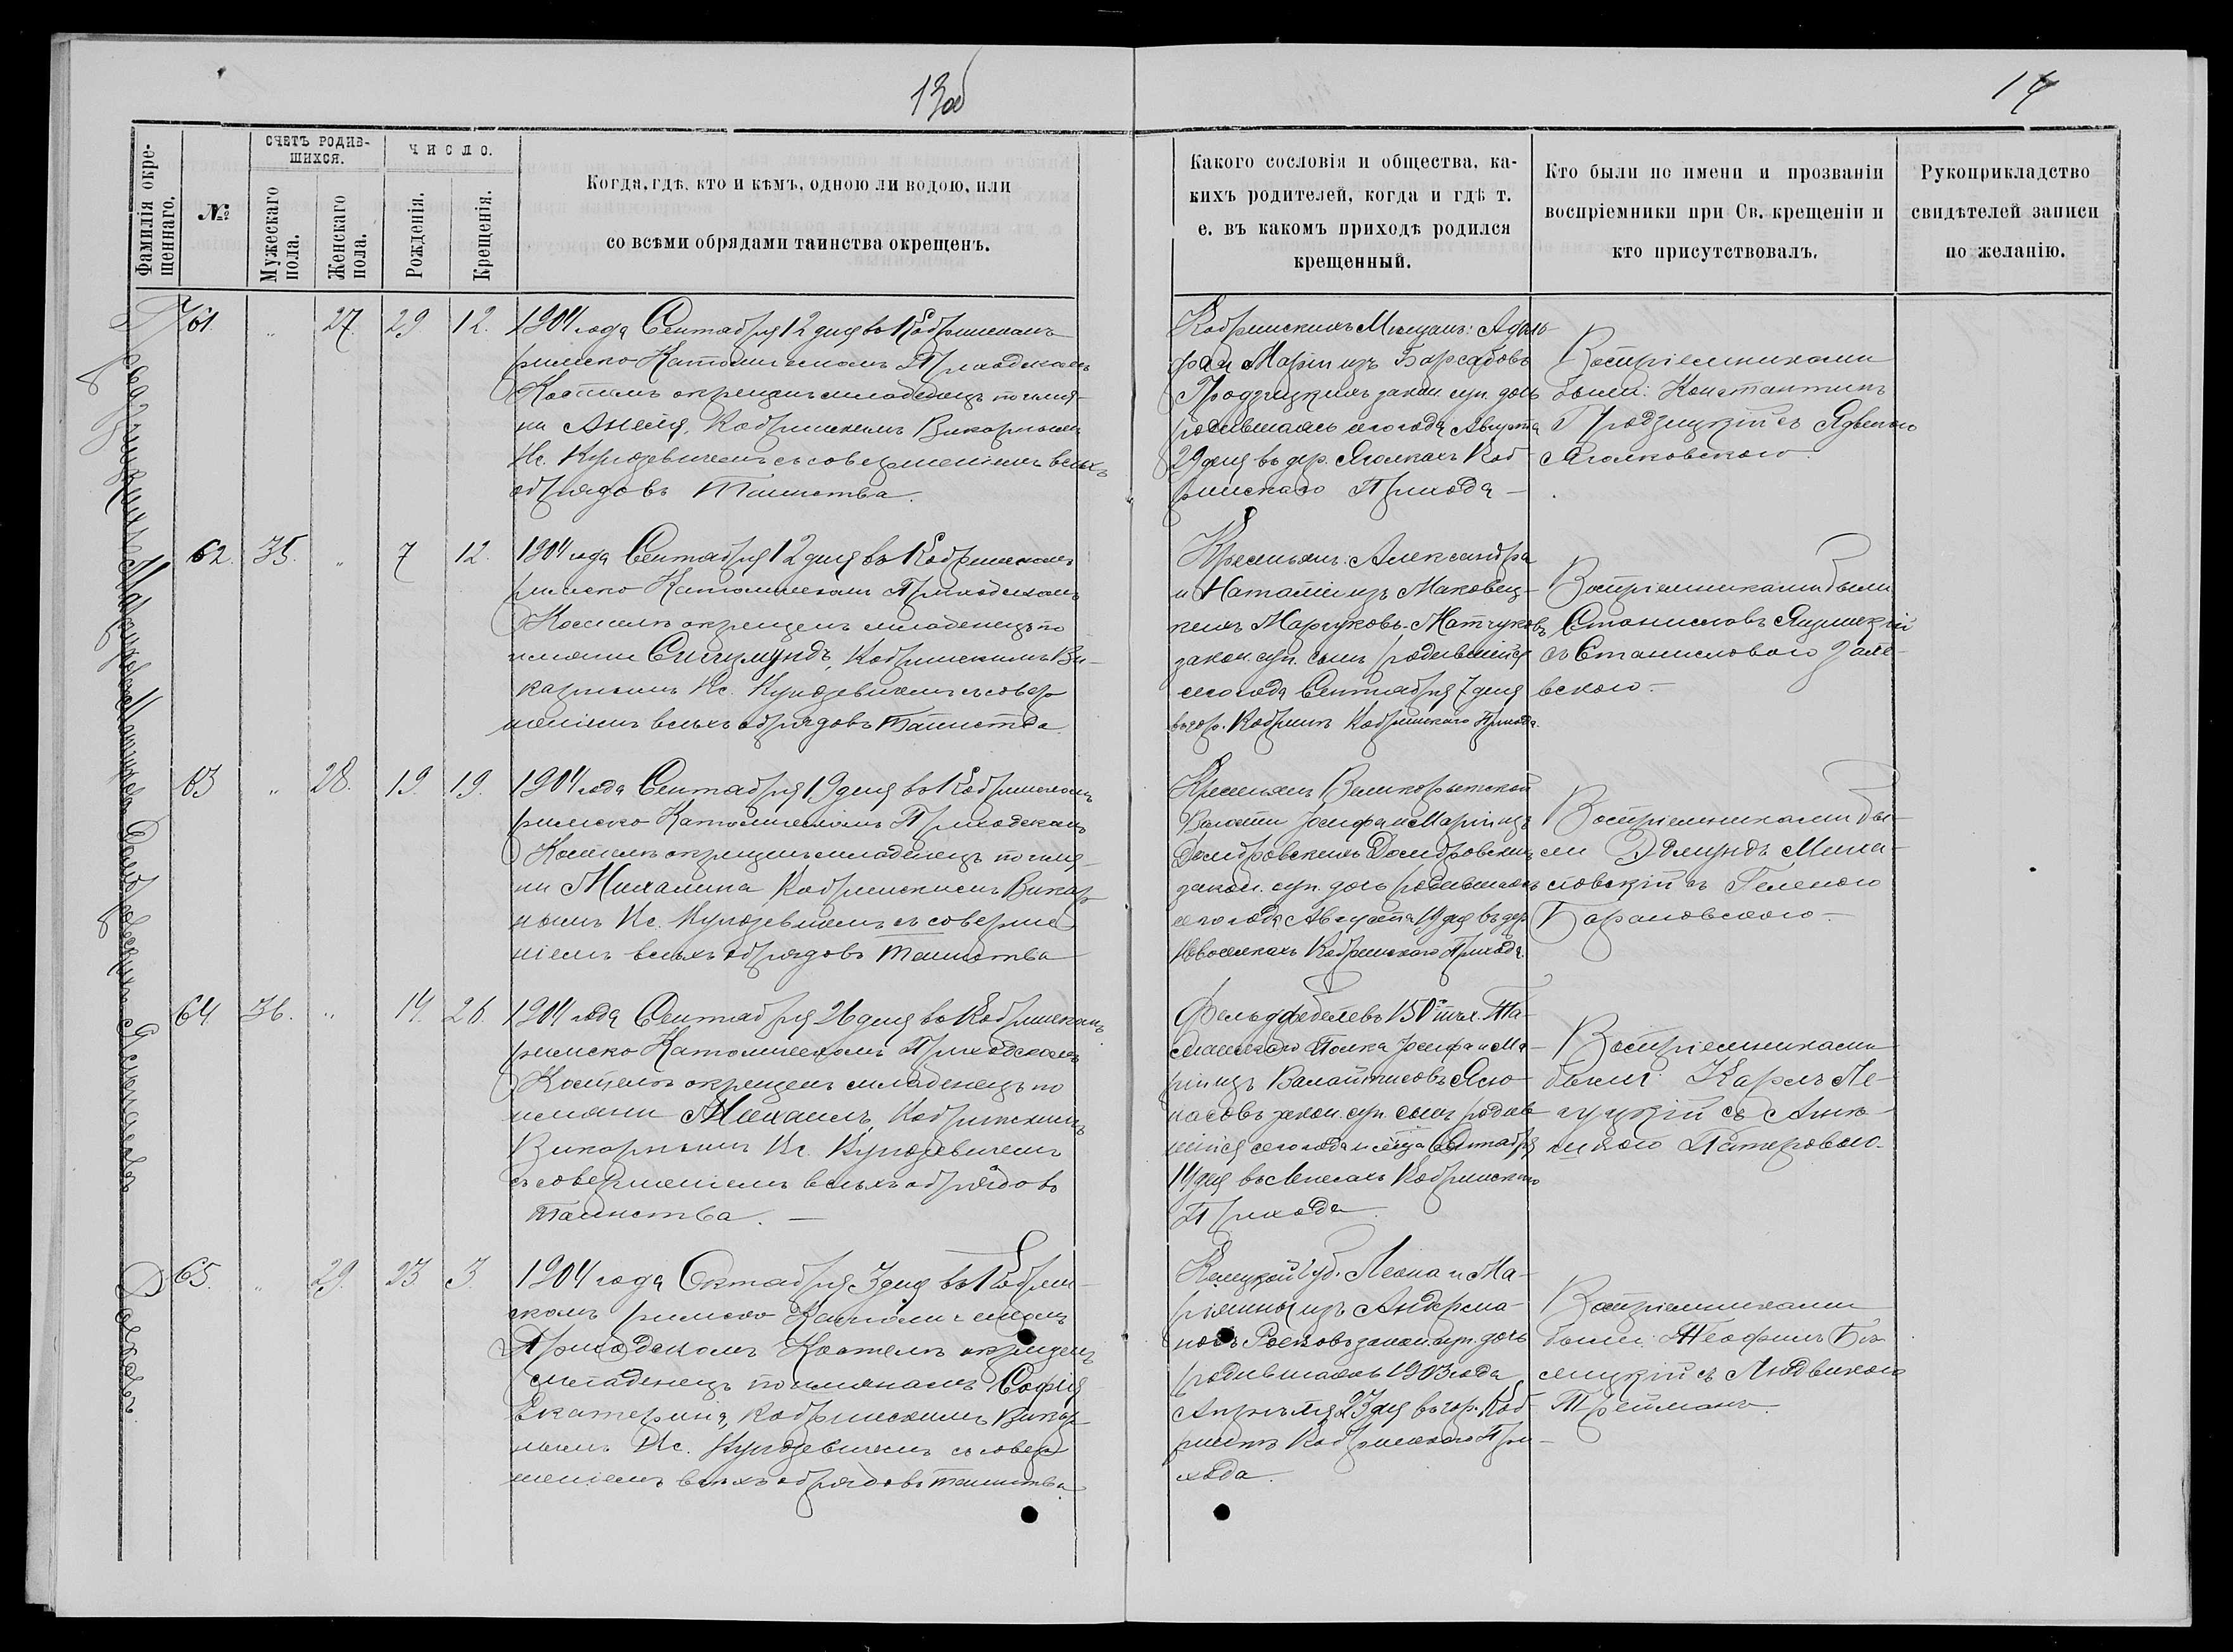 13об
14
Фамилія окре-
щеннаго.
№
СЧЕТЪ РОДИВ-
ШИХСЯ.
Мужескаго
пола.
Женскаго
пола.
ЧИСЛО.
Рожденія.
Крещенія.
Когда, гдѣ, кто и кѣмъ, одною ли водою, или
со всѣми обрядами таинства окрещенъ.
Какого сословія и общества, ка-
кихъ родителей, когда и гдѣ т.
е. въ какомъ приходѣ родился
крещенный.
Кто были по имени и прозванію
воспріемники при Св. крещеніи и
кто присутствовалъ.
Рукоприкладство
свидѣтелей записи
по желанію.
61. " 27. 29 12.
1904 года Сентября 12 дня въ Кобринскомъ
римско Католическомъ Приходскомъ
Костелѣ окрещенъ младенецъ по име-
ни Анеля, Кобринскимъ Викарнымъ
Кс. съ совершеніемъ всѣхъ
обрядовъ Таинства.
Кобринскихъ Мѣщанъ:
и Маріи изъ Барсабовъ
Гродзицкихъ закон. суп. дочь
родившаяся сего года Августа
29 дня въ дер. Ягелкахъ Коб-
ринскаго Прихода —
Воспріемниками
были: Константинъ
Гродзицкій съ Ядвигою
62. 35. " 7 12.
1904 года Сентября 12 дня въ Кобринскомъ
римско Католическомъ Приходскомъ
Костелѣ окрещенъ младенецъ по
имени Сигизмундъ, Кобринскимъ Ви-
карнымъ Кс. съ совер-
шеніемъ всѣхъ обрядовъ Таинства
Крестьянъ: Александра
и Наталіи изъ Маковец-
кихъ Марчуковъ-Матчуковъ
закон. суп. сынъ родившійся
сего года Сентября 7 дня
въ гор. Кобринѣ Кобринскаго Прихода.
Воспріемниками были
Станиславъ
съ Станиславою Зале-
вскою. —
63 " 28. 19. 19.
1904 года Сентября 19 дня въ Кобринскомъ
римско Католическомъ Приходскомъ
Костелѣ окрещенъ младенецъ по име-
ни Михалина Кобринскимъ Викар-
нымъ Кс. съ соверше-
ніемъ всѣхъ обрядовъ таинства
Крестьянъ Великорытской
Волости Іосифа и Маріи изъ
Домбровскихъ Домбровскихъ
закон. суп. дочь родившаяся
сего года Августа 19 дня въ дер.
Новоселкахъ Кобринскаго Прихода.
Воспріемниками бы-
ли Эдмундъ Миха-
ловскій съ Геленою
Барановскою. —
64 36. " 14. 26.
1904 года Сентября 26 дня въ Кобринскомъ
римско Католическомъ Приходскомъ
Костелѣ окрещенъ младенецъ по
имени Михаилъ, Кобринскимъ
Викарнымъ Кс.
съ совершеніемъ всѣхъ обрядовъ
таинства. —
Фельдфебелевъ 150 пѣх. Та-
манскаго Полка Іосифа и Ма-
ріи изъ
закон. суп. сынъ родив-
шійся сего года мѣсяца Сентября
14 дня въ Кобринскаго
Прихода
Воспріемниками
были: Карлъ
съ
65. " 29. 23 3.
1904 года Октября 3 дня въ Кобрин-
скомъ римско Католическомъ
Приходскомъ Костелѣ окрещенъ
младенецъ по именамъ Софія
Екатерина, Кобринскимъ Викар-
нымъ Кс. съ совер-
шеніемъ всѣхъ обрядовъ таинства
Келецкой губ. Леона и Ма-
ріянны изъ Андерма-
новъ закон. суп. дочь
родившаяся 1903 года
Апрѣля 23 дня въ гор. Коб-
ринѣ Кобринскаго При-
хода.
Воспріемниками
были: Теофилъ Бѣ-
лицкій съ Людвикою
Трейманъ